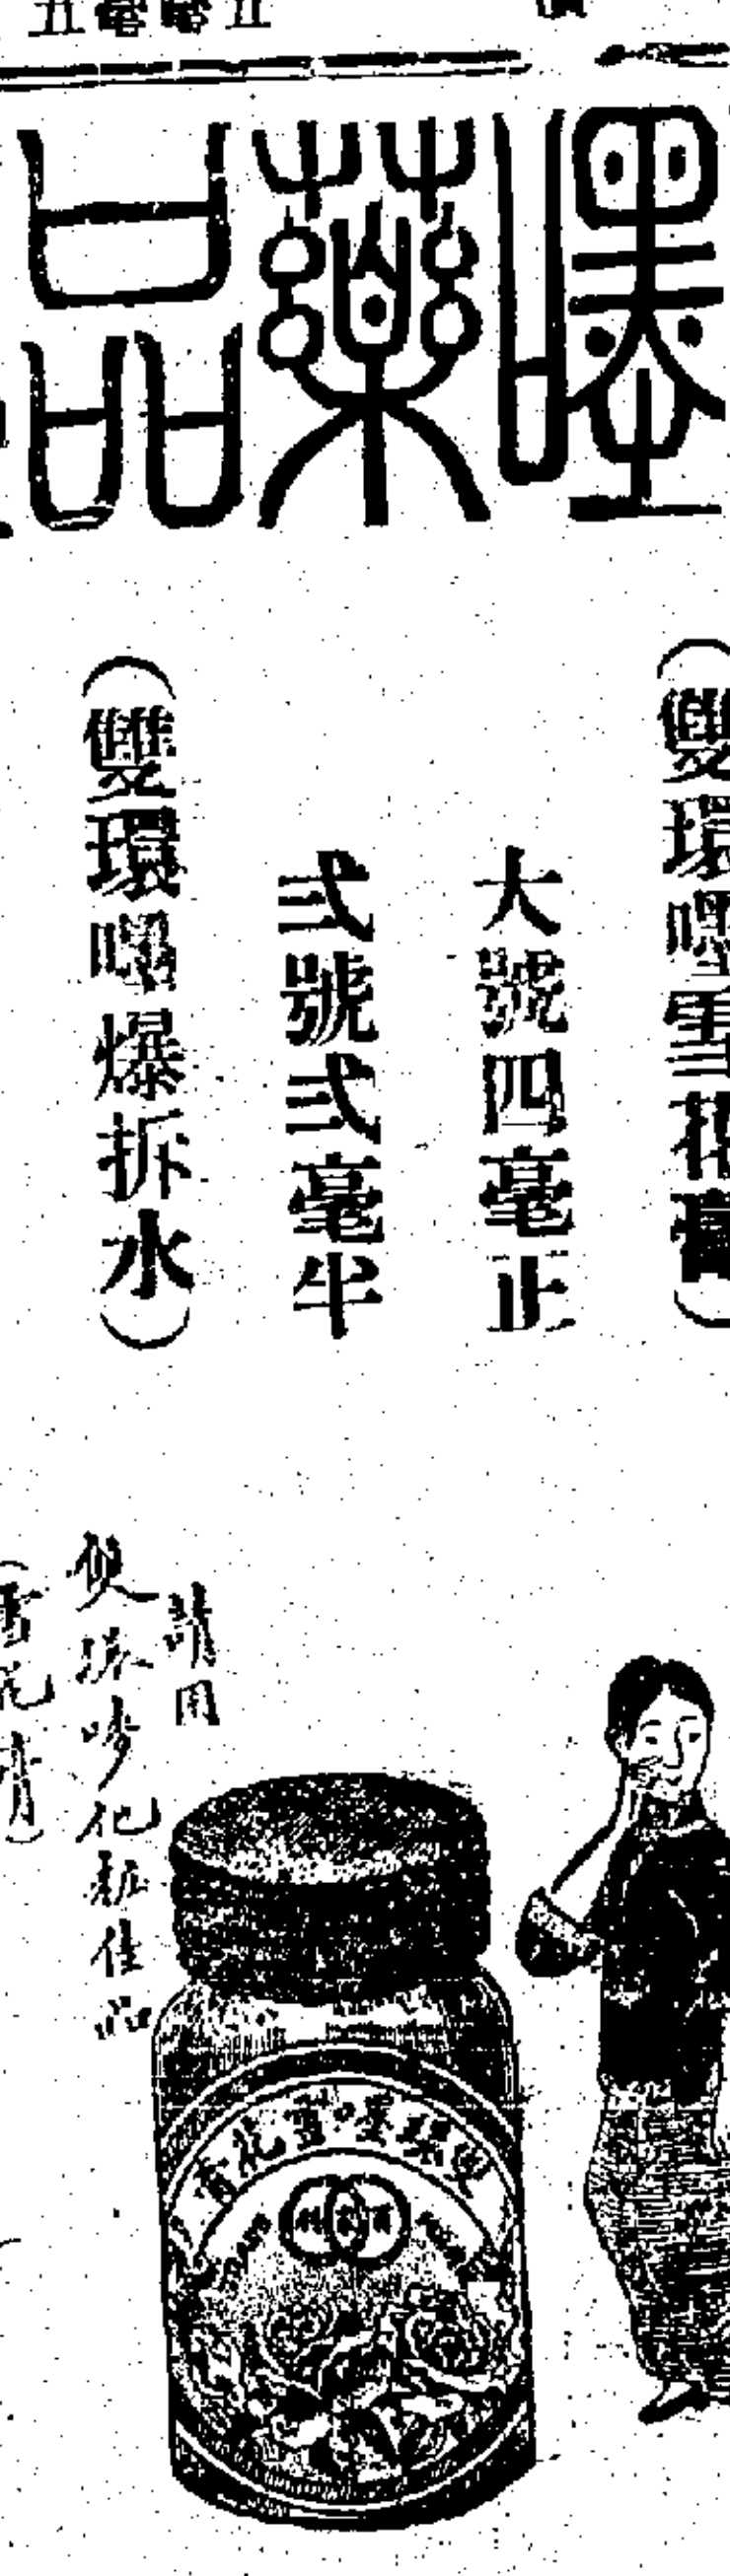 嚜藥品
(雙環嚜雪花膏)
大號四毫正
弍號弍毫半
(雙環嚜爆拆水)
請用
雙環嚜化粧佳品
(雪花膏)
雙環嚜雪花膏